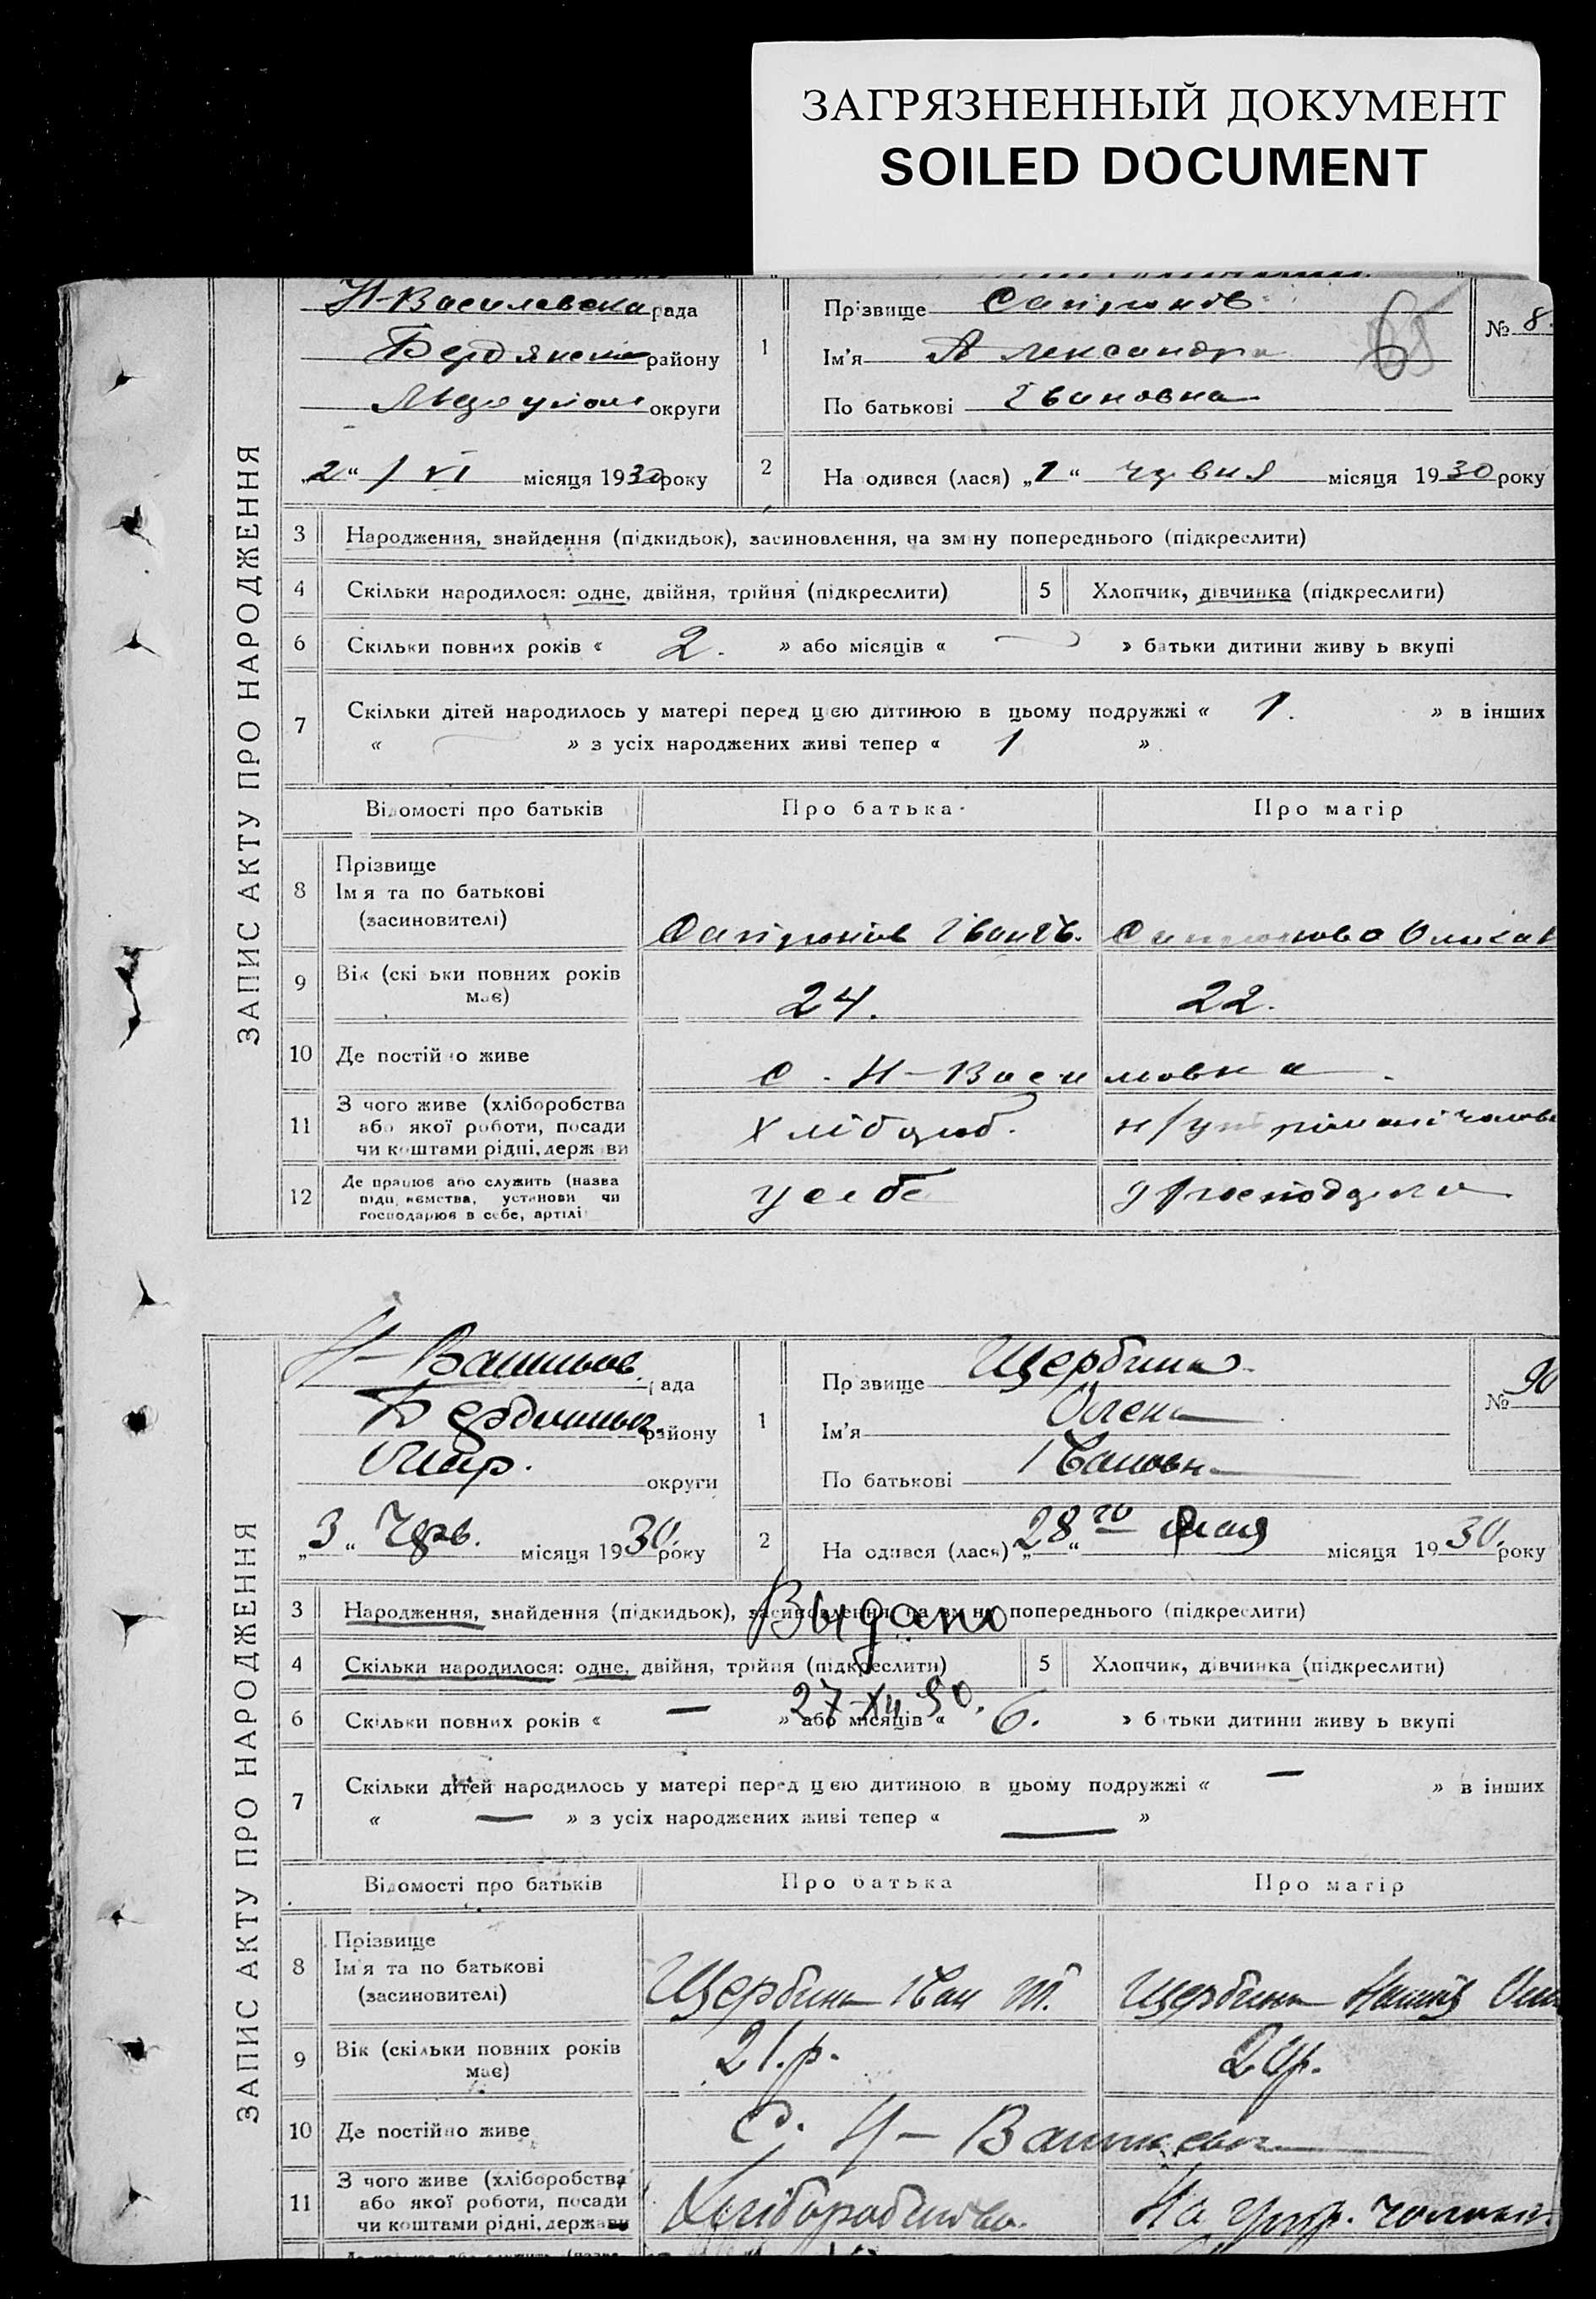 ЗАГРЯЗНЕННЫЙ ДОКУМЕНТ
SOILED DOCUMENT
ЗАПИС АКТУ ПРО НАРОДЖЕННЯ
Н-Василевська рада
Бердянськ району
округи
„2“ / VI місяця 1930 року
1
Прізвище
Ім'я Александра
По батькові Івановна
№ 8
65
2
На одився (лася) „1“ червня місяця 1930 року
3 Народження, знайдення (підкидьок), засиновлення, на зміну попереднього (підкреслити)
4 Скільки народилося: одне, двійня, трійня (підкреслити) 5 Хлопчик, дівчинка (підкреслити)
6 Скільки повних років « 2. » або місяців « » батьки дитини живу ь вкупі
7 Скільки дітей народилось у матері перед цією дитиною в цьому подружжі « 1. » в інших
« » з усіх народжених живі тепер « 1 »
Відомості про батьків Про батька Про матір
8 Прізвище
Ім я та по батькові
(засиновителі)
Іван
9 Вік (скі ьки повних років
має)
24. 22.
10 Де постійно живе
с. Н-Васи ловка
11 З чого живе (хліборобства
або якої роботи, посади
чи коштами рідні, держ ви
Хлібороб.
12 Де працює або служить (назва
підп ємства, установи чи
господарює в себе, артілі
у себе
ЗАПИС АКТУ ПРО НАРОДЖЕННЯ
Н- рада
району
округи
„3“ Черв. місяця 1930 року
1
Прізвище Щербина
Ім'я Олена
По батькові Івановн
№ 90
2
На одився (лася) „28го“ мая місяця 1930. року
3 Народження, знайдення (підкидьок), засиновлення, на зміну попереднього (підкреслити)
Выдано
4 Скільки народилося: одне, двійня, трійня (підкреслити) 5 Хлопчик, дівчинка (підкреслити)
27-XII 50.
6 Скільки повних років « — » або місяців « 6. » батьки дитини живу ь вкупі
7 Скільки дітей народилось у матері перед цією дитиною в цьому подружжі « — » в інших
« — » з усіх народжених живі тепер « — »
Відомості про батьків Про батька Про матір
8 Прізвище
Ім'я та по батькові
(засиновителі)
Щербина Іван Щербина
9 Вік (скільки повних років
має)
21.р.
10 Де постійно живе
С. Н-
11 З чого живе (хліборобства
або якої роботи, посади
чи коштами рідні, держави
Хліборобство. На